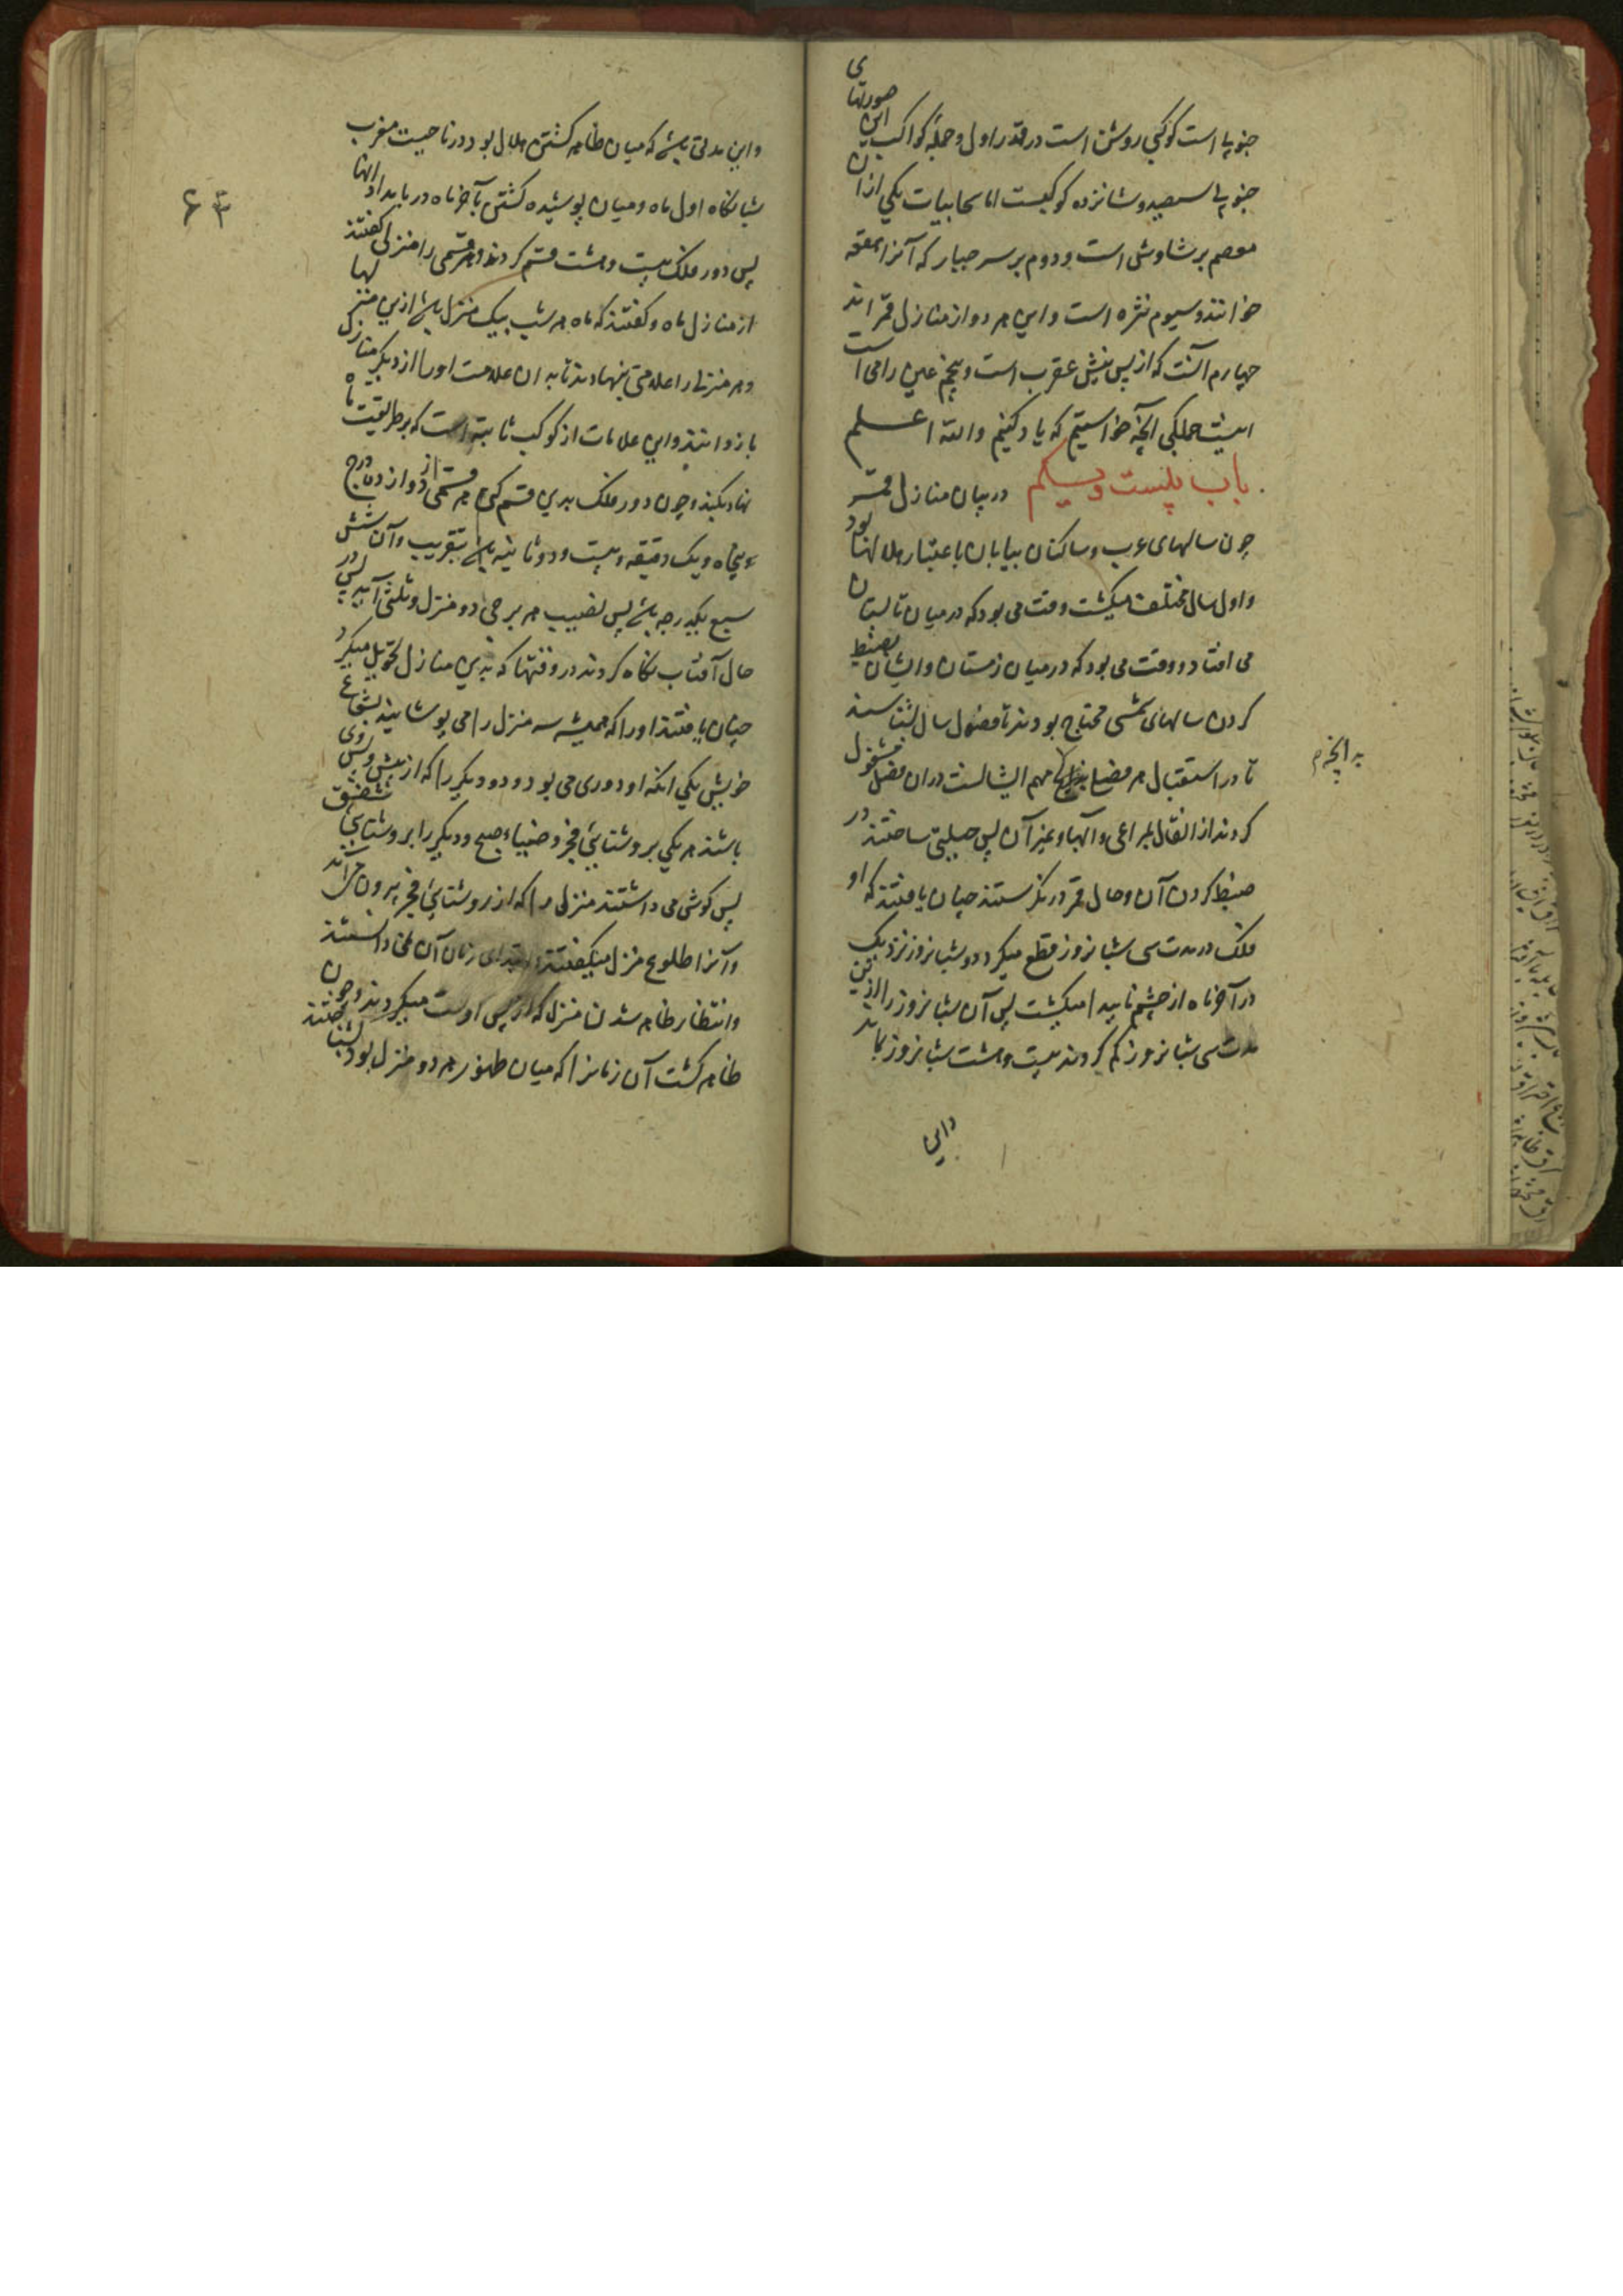 جنوبیا است کوکبی روشن است در قدر اول و جملهٔ کواکب این صورتهای
جنوبی سیصد و شانزده کوکبست اما سحابیات یکی ازان
معصم برشاوش است و دوم بر سر جبار که آنرا هقعه
خوانند و سیوم نثره است و این هر دو از منازل قمراند
چهارم آنست که از پس نیش عقرب است و پنجم عین رامی است
اینست جملکی آنچه خواستیم که یاد کنیم والله اعلم
باب بیست و یکم در بیان منازل قمر
چون سالهای عرب و ساکنان بیابان باعتبار هلالها بود
و اول سال مختلف میکشت وقت می بود که در میان تابستان
می افتاد و وقت می بود که در میان زمستان و ایشان بضبط
کردن سالهای شمسی محتاج بودند تا فصول سال بشناسند
تا در استقبال هر فصل مهم ایشانست دران فصل مشغول
به آنچه
کردند از انتقال بمراعی و آبها و غیر آن پس حیلتی ساختند در
ضبط کردن آن و حال قمر درنکرستند چنان یافتند که او
فلک در مدت سی شبانروز قطع میکرد و دو شبانروز نزدیک
در آخر ماه از چشم ناپیدا میکشت پس آن شبانروز را ازین
مدت سی شبانروز کم کردند بیست و هشت شبانروز بماند
و این
۶۳
و این مدتی باشد که میان ظاهر کشتن هلال بود در ناحیت مغرب
شبانکاه اول ماه و میان پوشیده کشتن بآخر ماه در بامداد انها
پس دور فلک بیست و هشت قسم کردند و هر قسمی را منزلی کفتند
از منازل ماه و کفتند که ماه هر شب بیک منزل باشد ازین منزلها
و هر منزلی را علامتی بنهادند تا بدان علامت او را از دیکر منازل
باز دانند و این علامات از کوکب ثابته است که بر طریقت ماه
نزدیکند و چون دور فلک بدین قسم کنی هر قسمی از دوازده درج
و پنجاه و یک دقیقه و بیست و دو ثانیه باشد بتقریب و آن شش
سبع یکدرجه باشد پس نصیب هر برجی دو منزل و ثلثی آید پس در
حال آفتاب نکاه کردند در وقتها که بدین منازل تحویل میکرد
چنان یافتند او را که همیشه سه منزل را می پوشانید بشعاع
خویش یکی آنکه او در وی می بود و دو دیکر را که از پیش و پس وی
باشند هر یکی بروشنایئ فجر و ضیاء صبح و دیکر را بروشنایئ شفق
پس کوش می داشتند منزلی را که از روشنایئ فجر بیرون می آید
و آنرا طلوع منزل میکفتند و ابتدای زمان آن می دانستند
و انتظار ظاهر شدن منزل که از پس اوست میکردند و چون
ظاهر کشت آن زمانرا که میان طلوع هر دو منزل بود بشناختند